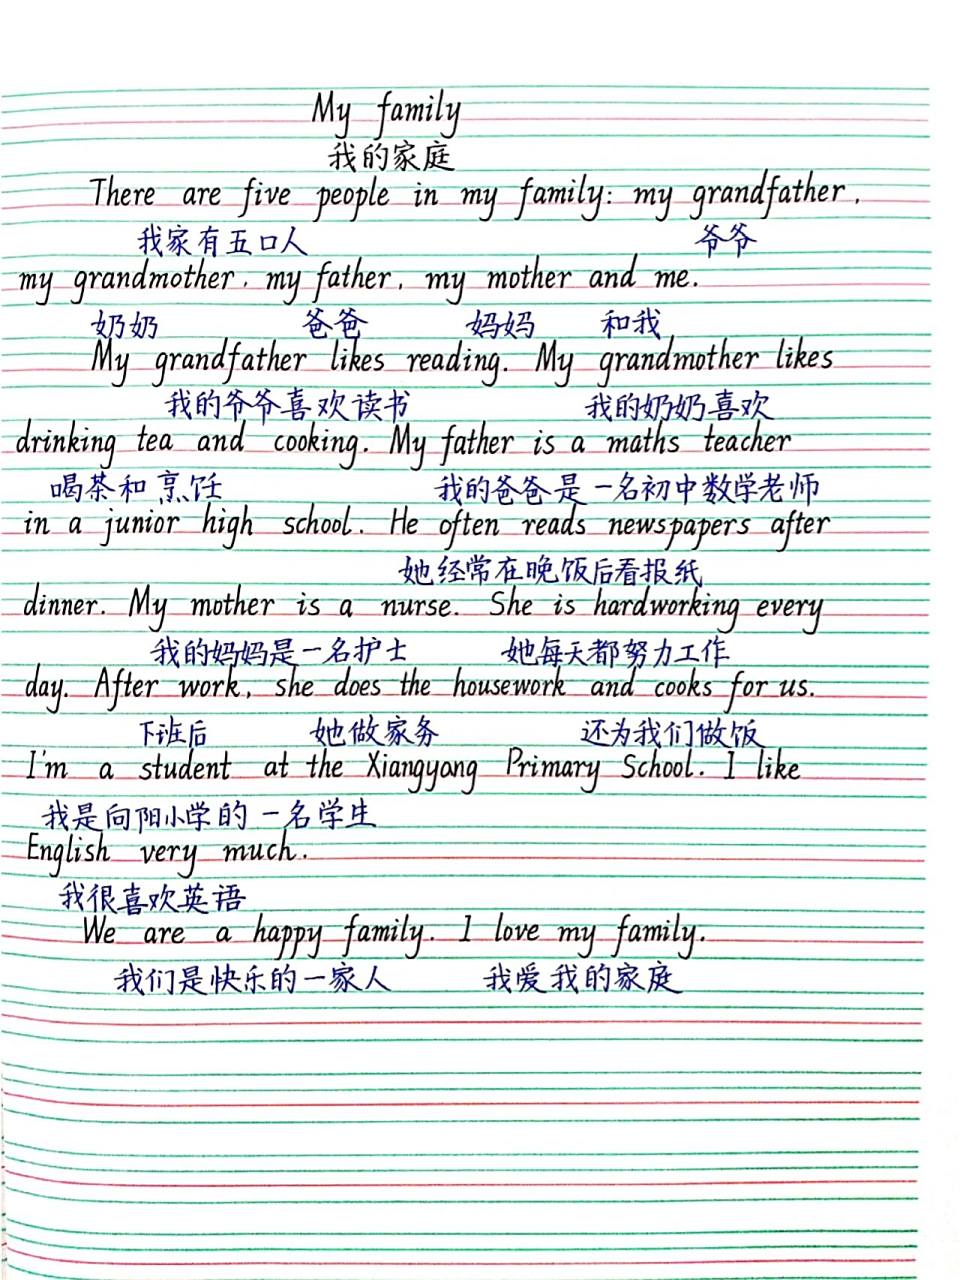 My family
我的家庭
There are five people in my family: my grandfather,
我家有五口人 爷爷
my grandmother, my father, my mother and me.
奶奶 爸爸 妈妈 和我
My grandfather likes reading. My grandmother likes
我的爷爷喜欢读书 我的奶奶喜欢
drinking tea and cooking. My father is a maths teacher
喝茶和烹饪 我的爸爸是一名初中数学老师
in a junior high school. He often reads newspapers after
她经常在晚饭后看报纸
dinner. My mother is a nurse. She is hardworking every
我的妈妈是一名护士 她每天都努力工作
day. After work, she does the housework and cooks for us.
下班后 她做家务 还为我们做饭
I'm a student at the Xiangyang Primary School. I like
我是向阳小学的一名学生
English very much.
我很喜欢英语
We are a happy family. I love my family.
我们是快乐的一家人 我爱我的家庭